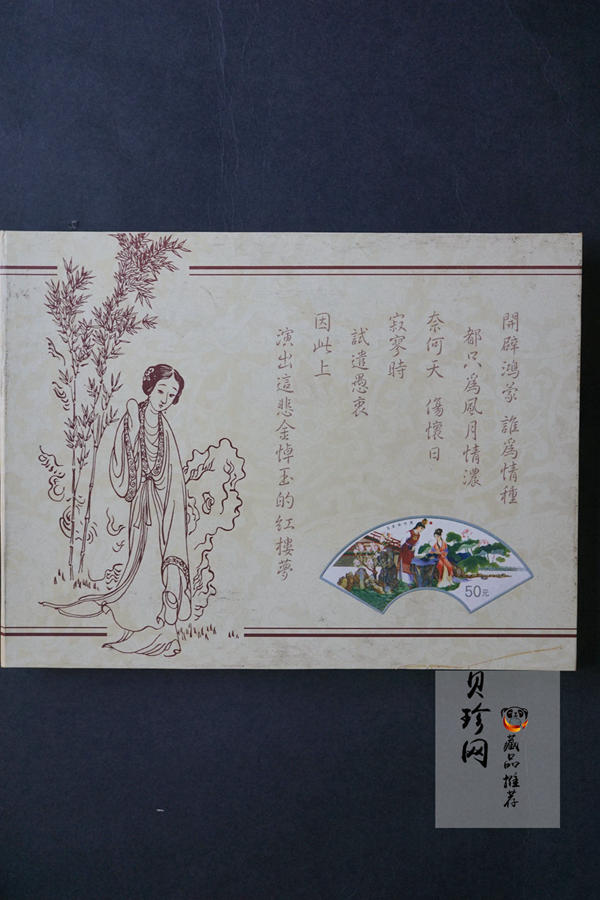 開辟鴻蒙 誰爲情種
都只爲風月情濃
奈何天 傷懷日
寂寥時
試遣愚衷
因此上
演出這悲金悼玉的紅樓夢
50元
贝珍网
藏品推荐